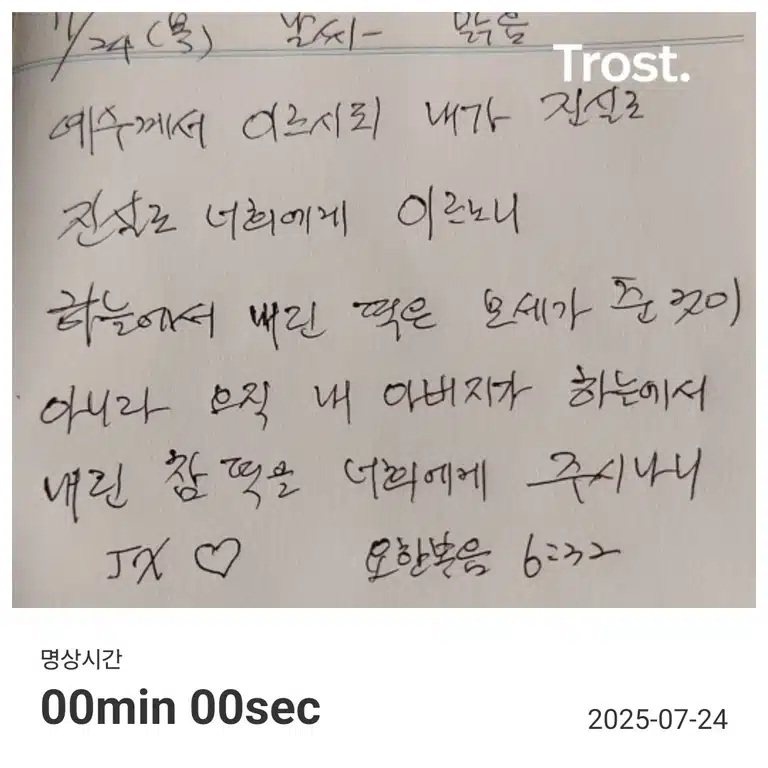 7/24 (목) 날씨- 맑음
Trost.
예수께서 이르시되 내가 진실로
진실로 너희에게 이르노니
하늘에서 내린 떡은 모세가 준 것이
아니라 오직 내 아버지가 하늘에서
내린 참 떡을 너희에게 주시나니
JX ♡ 요한복음 6:32
명상시간
00min 00sec
2025-07-24